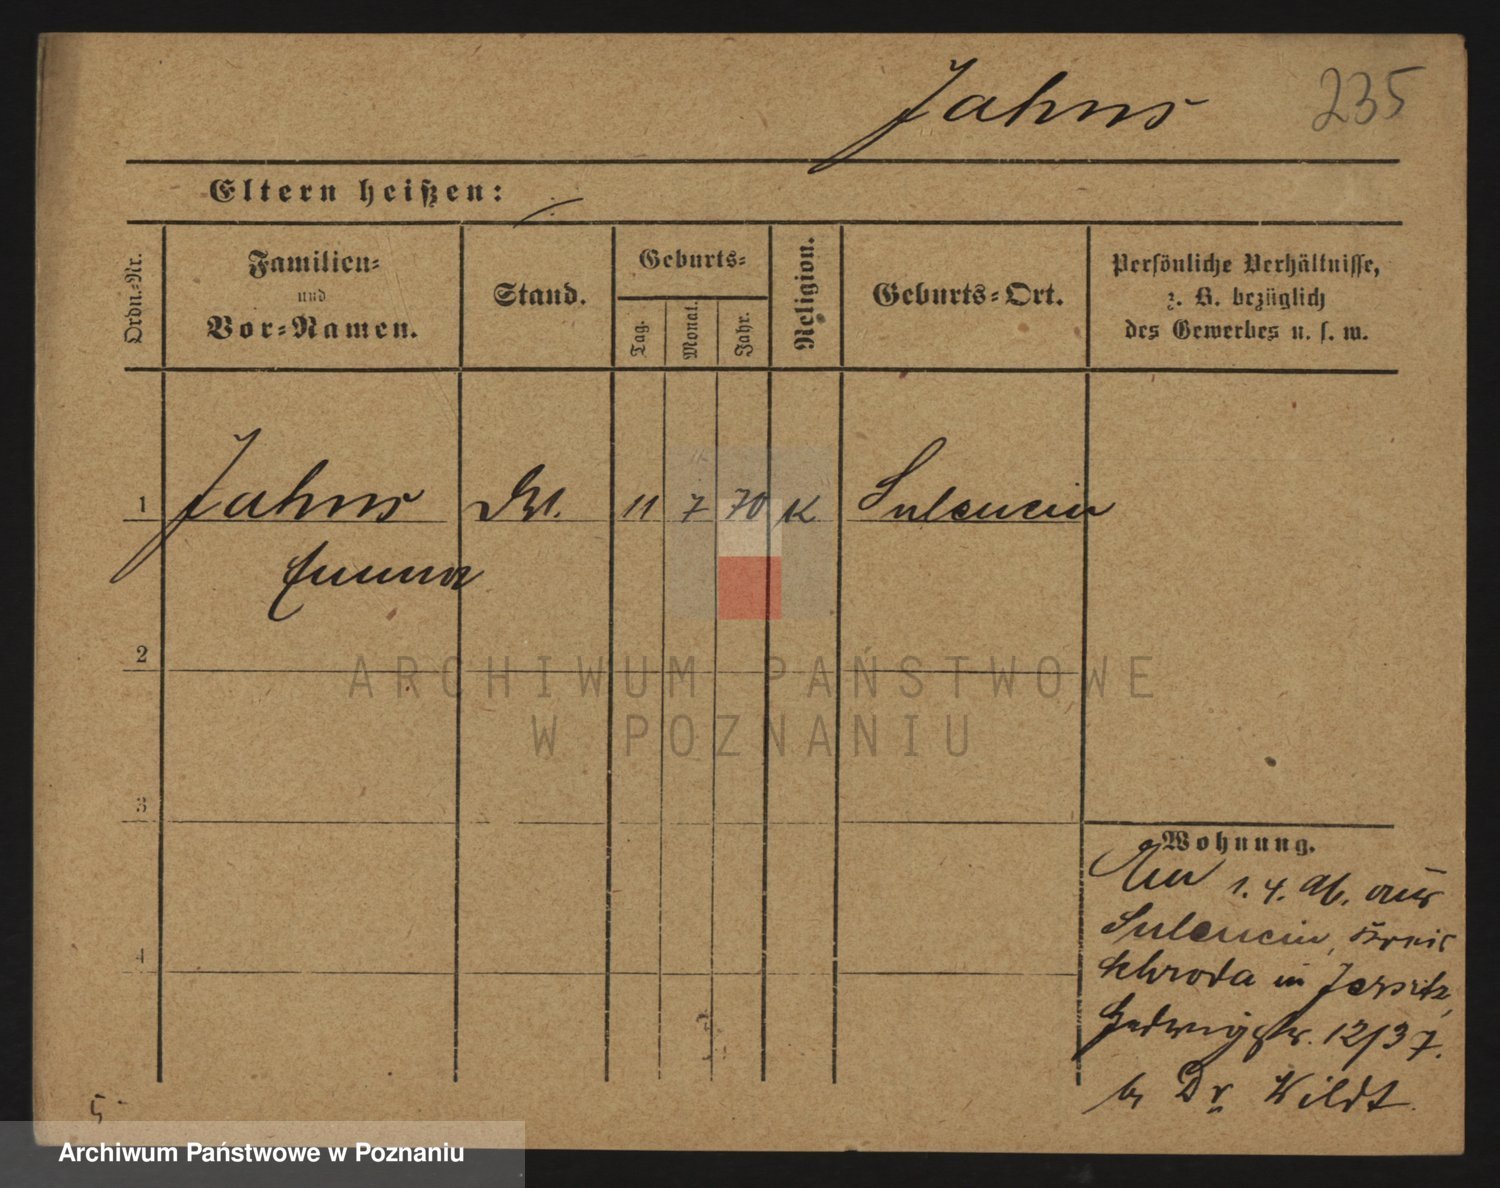 Jahns 235
Eltern heißen:
Ordn.-Nr.
Familien-
und
Vor-Namen.
Stand.
Geburts-
Tag.
Monat.
Jahr.
Religion.
Geburts-Ort.
Persönliche Verhältnisse,
z. B. bezüglich
des Gewerbes u. s. w.
1 Jahns 11 7 70 K Sulencin
Emma
2
3
4
Wohnung.
1. 4. ab. aus
Sulencin, Kreis
Schroda in Jersitz,
Hedwigstr. 12/37.
b. Dr. Wildt.
5
ARCHIWUM PAŃSTWOWE
W POZNANIU
Archiwum Państwowe w Poznaniu